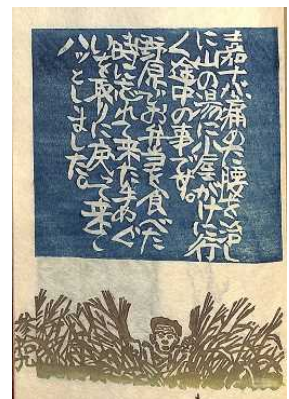 嘉十が痛めた腰を治し
に山の湯に小屋がけに行
く途中の事です。
野原でお弁当を食べた
時に忘れて来た手ぬぐ
いを取りに戻って来て
ハッとしました。